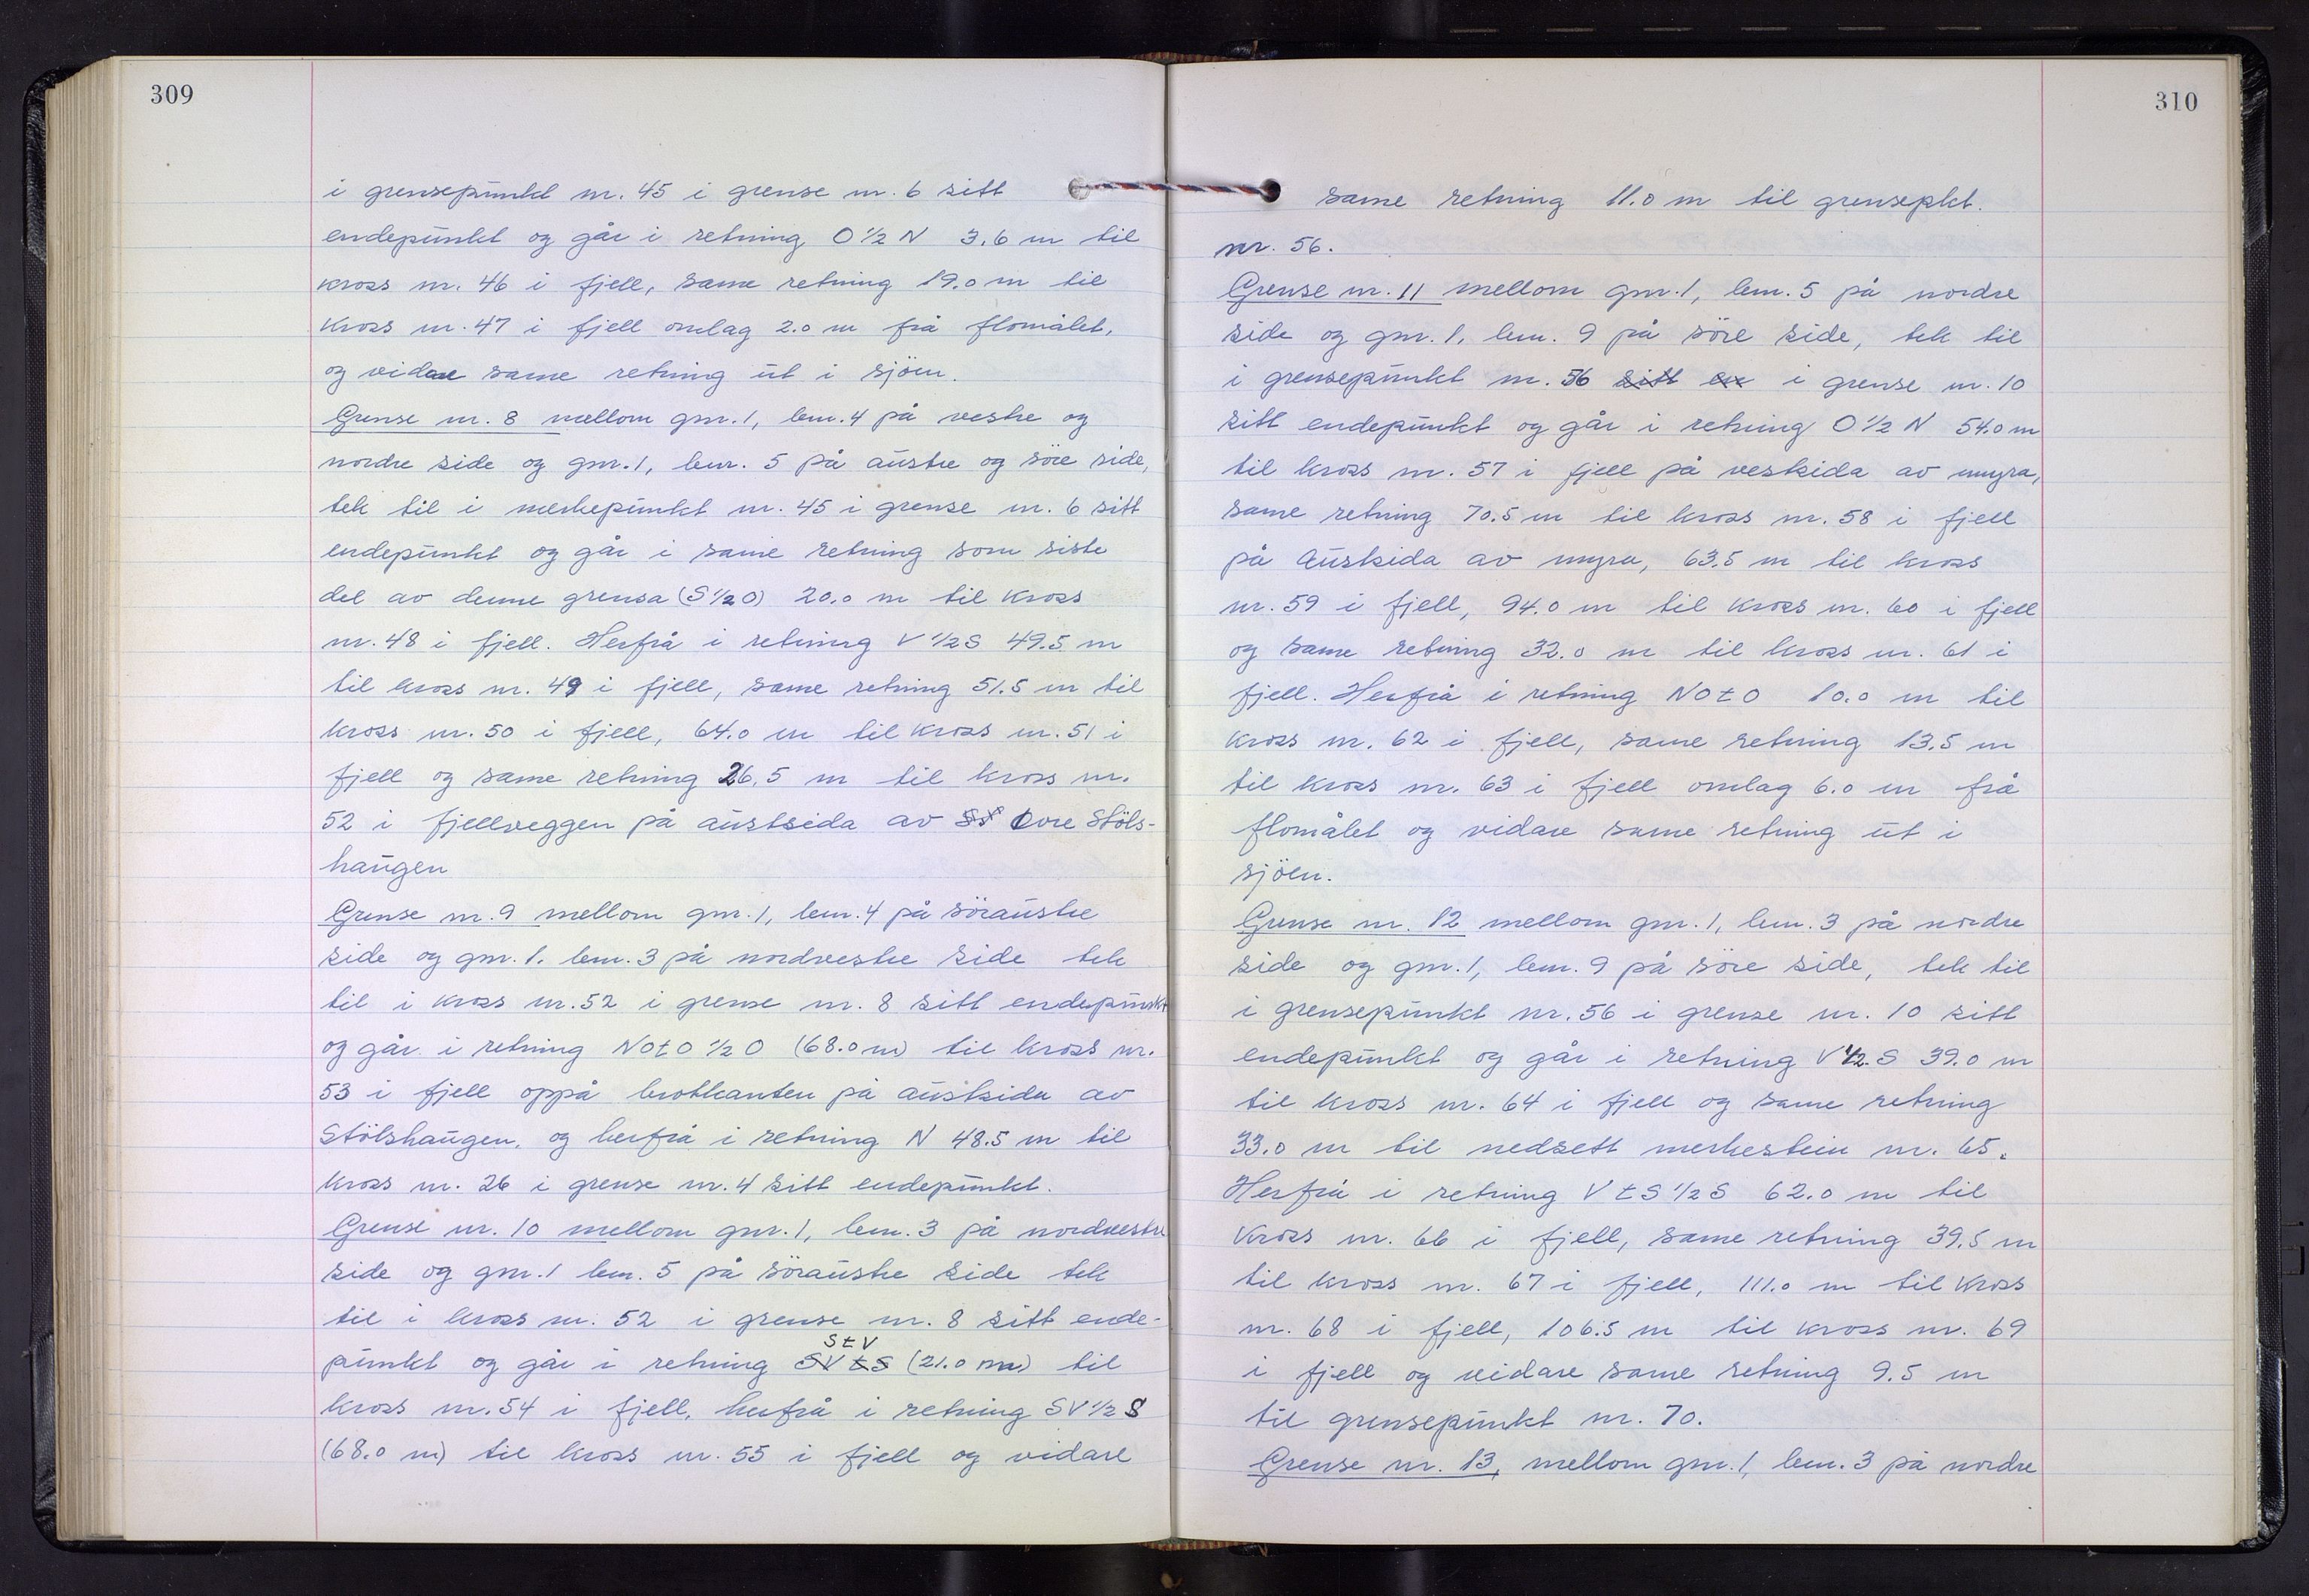 309
i grensepunkt nr. 45 i grense nr. 6 sitt
endepunkt og går i retning O ½ N 3.6 m til
kross nr. 46 i fjell, same retning 19.0 m til
kross nr. 47 i fjell omlag 2.0 m frå flomålet,
og vidare same retning ut i sjöen.
Grense nr. 8 mellom gnr. 1, bnr. 4 på vestre og
nordre side og gnr. 1, bnr. 5 på austre og söre side,
tek til i merkepunkt nr. 45 i grense nr. 6 sitt
endepunkt og går i same retning som siste
del av denne grensa (S ½ O) 20.0 m til kross
nr. 48 i fjell. Herfrå i retning V ½ S 49.5 m
til kross nr. 49 i fjell, same retning 51.5 m til
kross nr. 50 i fjell, 64.0 m til kross nr. 51 i
fjell og same retning 26.5 m til kross nr.
52 i fjellveggen på austsida av St Övre Stöls-
haugen
Grense nr. 9 mellom gnr. 1, bnr. 4 på söraustre
side og gnr. 1. bnr. 3 på nordvestre side tek
til i kross nr. 52 i grense nr. 8 sitt endepunkt
og går i retning NOtO ½ O (68.0 m) til kross nr.
53 i fjell oppå brotkanten på austsida av
Stölshaugen, og herfrå i retning N 48.5 m til
kross nr. 26 i grense nr. 4 sitt endepunkt.
Grense nr. 10 mellom gnr. 1, bnr. 3 på nordvestre
side og gnr. 1 bnr. 5 på söraustre side tek
til i kross nr. 52 i grense nr. 8 sitt ende-
StV
punkt og går i retning SVtS (21.0 m) til
kross nr. 54 i fjell, herfrå i retning SV ½ S
(68.0 m) til kross nr. 55 i fjell og vidare
310
same retning 11.0 m til grensepkt.
nr. 56.
Grense nr. 11 mellom gnr. 1, bnr. 5 på nordre
side og gnr. 1. bnr. 9 på söre side, tek til
i grensepunkt nr. 56 sitt en i grense nr. 10
sitt endepunkt og går i retning O ½ N 54.0 m
til kross nr. 57 i fjell på vestsida av myra,
same retning 70.5 m til kross nr. 58 i fjell
på Austsida av myra, 63.5 m til kross
nr. 59 i fjell, 94.0 m til kross nr. 60 i fjell
og same retning 32.0 m til kross nr. 61 i
fjell. Herfrå i retning NOtO 10.0 m til
kross nr. 62 i fjell, same retning 13.5 m
til kross nr. 63 i fjell omlag 6.0 m frå
flomålet og vidare same retning ut i
sjöen.
Grense nr. 12 mellom gnr. 1, bnr. 3 på nordre
side og gnr. 1, bnr. 9 på söre side, tek til
i grensepunkt nr. 56 i grense nr. 10 sitt
endepunkt og går i retning V ½ S 39.0 m
til kross nr. 64 i fjell og same retning
33.0 m til nedsett merkestein nr. 65.
Herfrå i retning VtS ½ S 62.0 m til
kross nr. 66 i fjell, same retning 39.5 m
til kross nr. 67 i fjell, 111.0 m til kross
nr. 68 i fjell, 106.5 m til kross nr. 69
i fjell og vidare same retning 9.5 m
til grensepunkt nr. 70.
Grense nr. 13, mellom gnr. 1, bnr. 3 på nordre